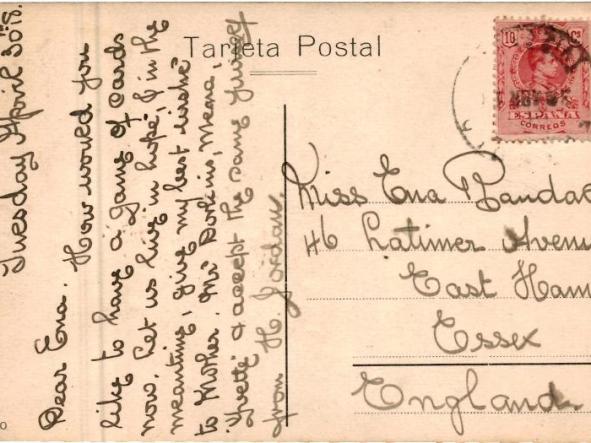 Tarjeta Postal
Tuesday April 30th 18.
Dear Ena. How would you
like to have a game of cards
now. Let us live in hope, & in the
meantime, give my best wishes
to Mother, Mr Dorkins, Meena,
Yvette & accept the same yourself
from H. Jordan.
10 Cs
ESPAÑA
CORREOS
Miss Ena Randa
46 Latimer Avenu
East Ham
Essex
England